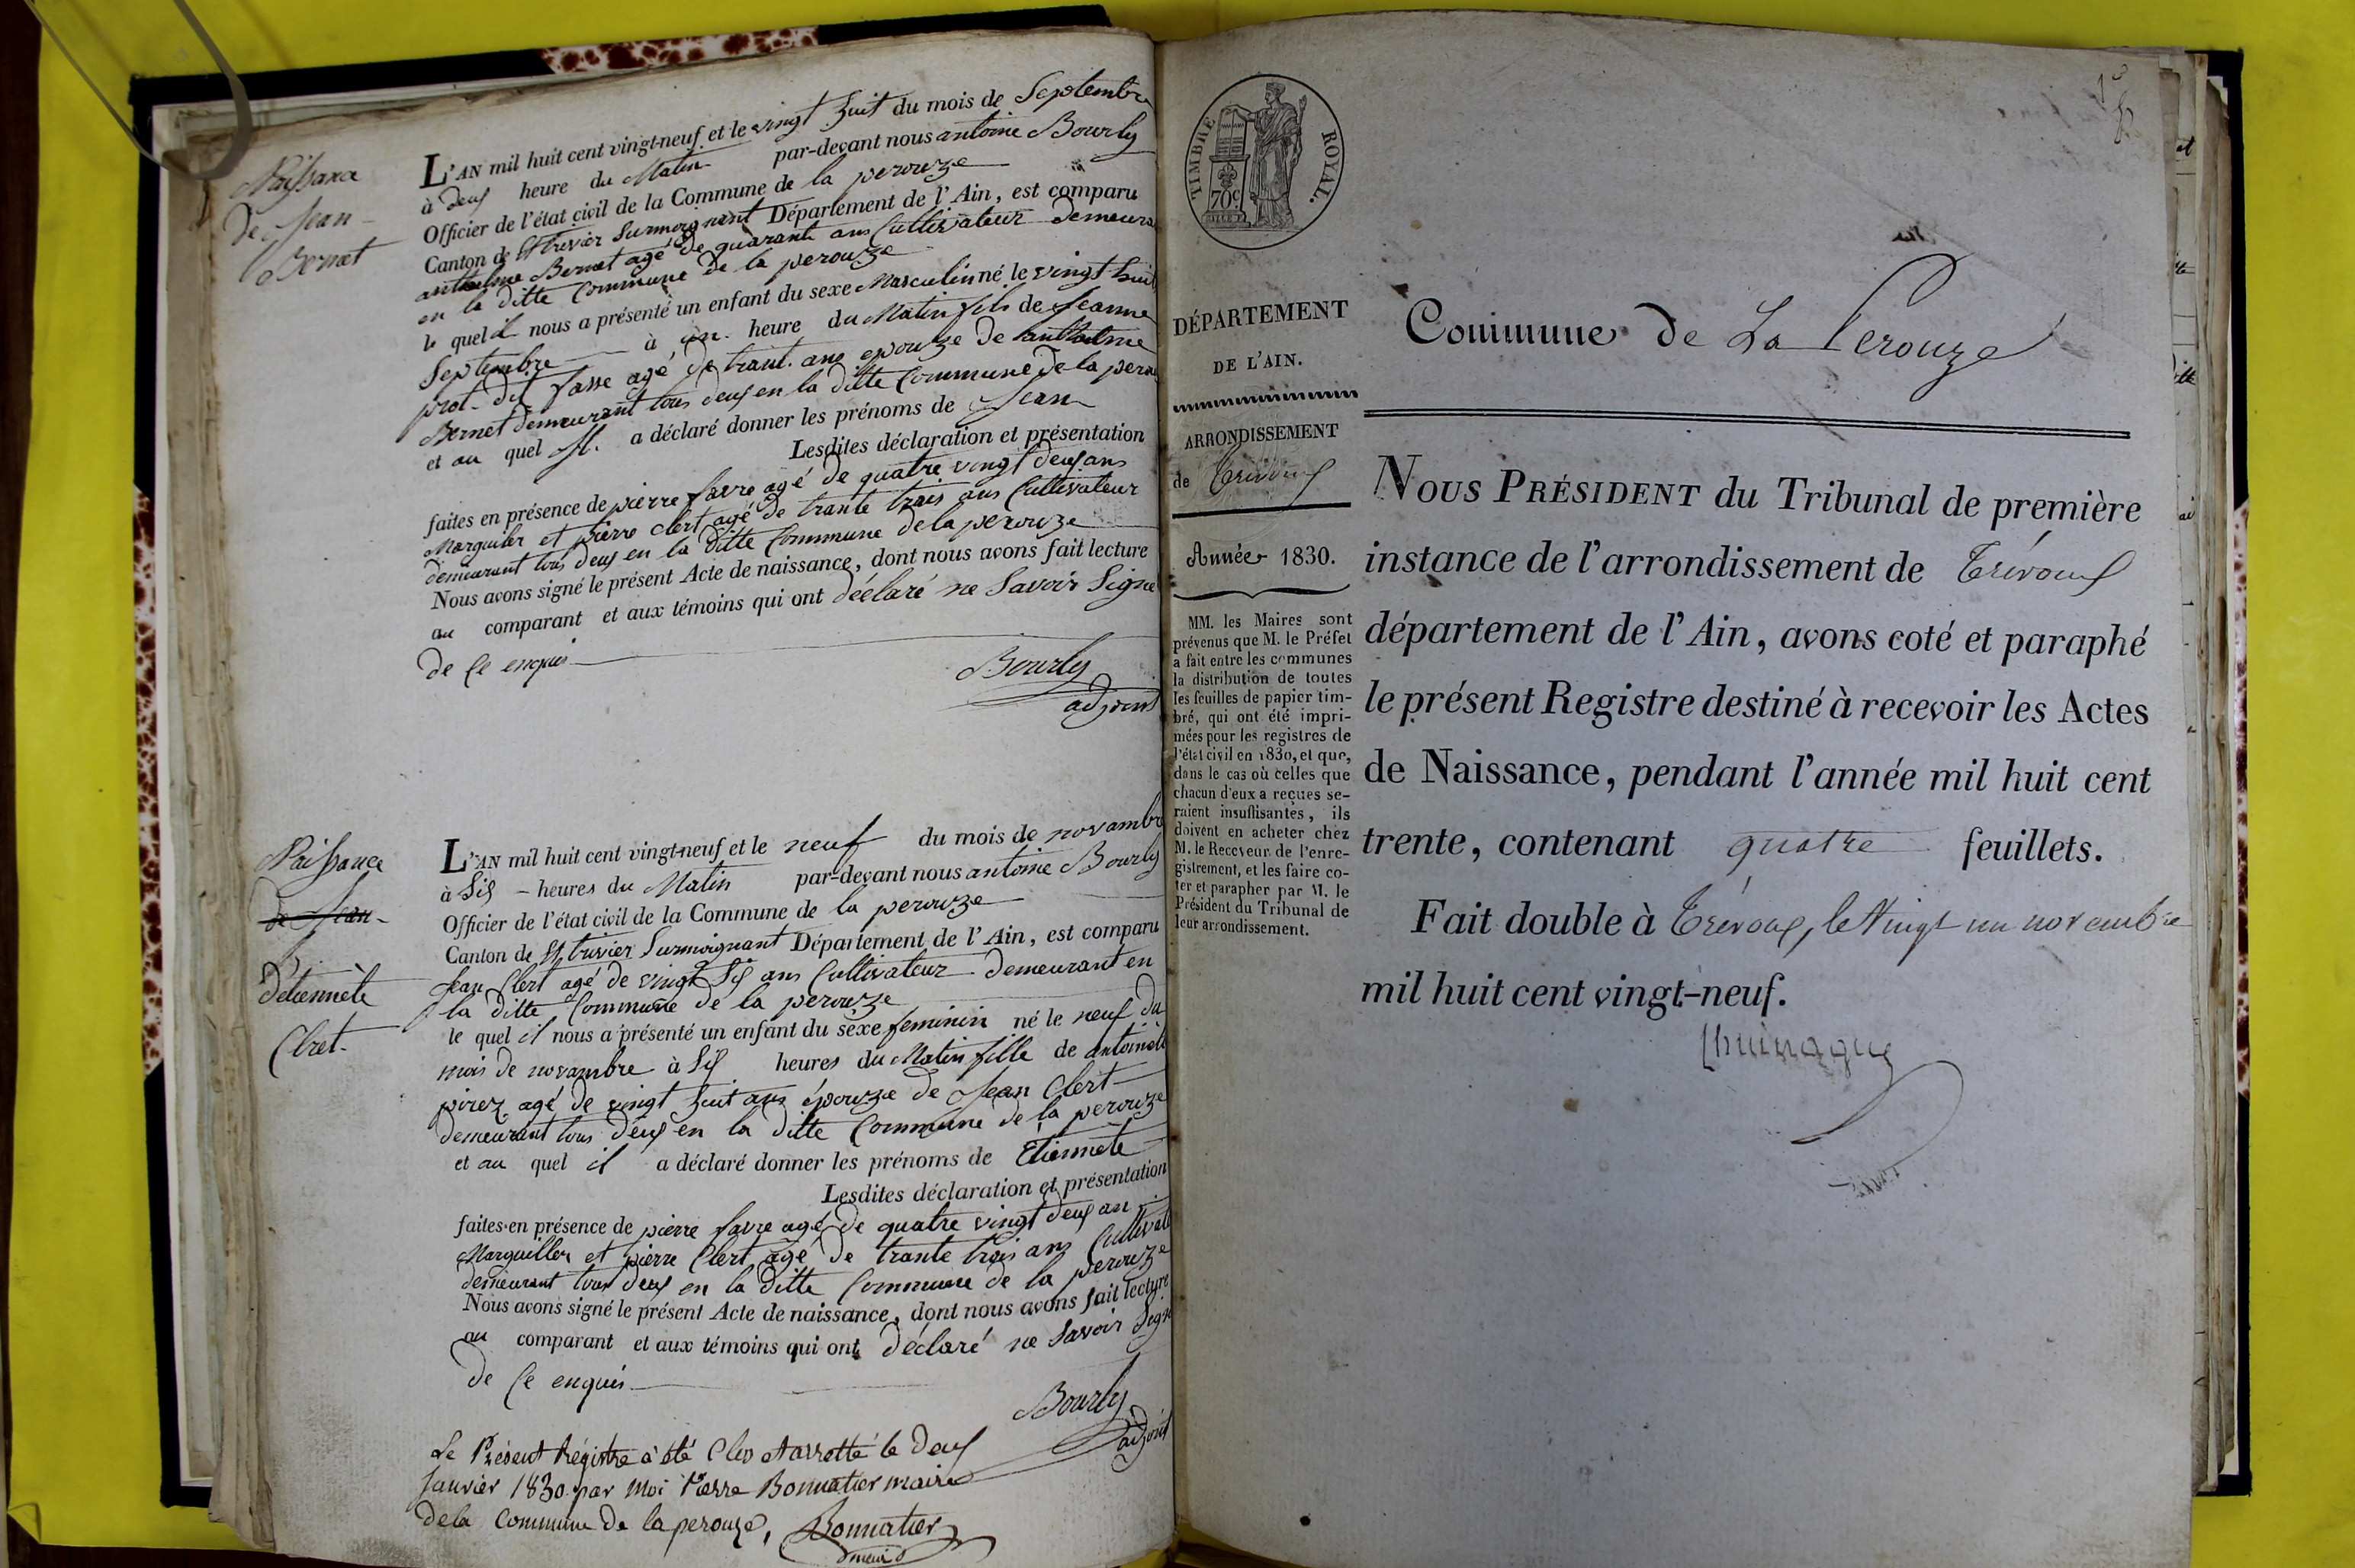 Naissance
de Jean
Bernet
L'AN mil huit cent vingt-neuf et le vingt huit du mois de Septembre
à deux heure du Matin par-devant nous antoine Bourly
Officier de l'état civil de la Commune de la perouze
Canton de St trivier Surmoignant Département de l'Ain, est comparu
anthelme Bernet agé de quarante ans Cultivateur demeura
en la ditte Commune de la perouze
le quel il nous a présenté un enfant du sexe Masculin né le vingt huit
Septembre à un heure du Matin fils de Jeanne
prot dit fasse agé de trante ans epouze de anthelme
Bernet demeurant tous deux en la ditte Commune de la perou
et au quel Il a déclaré donner les prénoms de Jean
Lesdites déclaration et présentation
faites en présence de pierre favre agé de quatre vingt deux ans
Marguiler et pierre Clert agé de trante trais ans Cultivateur
demeurant tous deux en la ditte Commune de la perouze
Nous avons signé le présent Acte de naissance, dont nous avons fait lecture
au comparant et aux témoins qui ont déclaré ne Savoir Signe
de Ce enquis
Bourly
adjoint
Naissance
de Jean
detiennete
Clret
L'AN mil huit cent vingt-neuf et le neuf du mois de novambre
à Six heures du Matin par-devant nous antoine Bourly
Officier de l'état civil de la Commune de la perouze
Canton de St trivier Surmoignant Département de l'Ain, est comparu
Jean Clert agé de vingt Six ans Cultivateur demeurant en
la ditte Commune de la perouze
le quel il nous a présenté un enfant du sexe feminin né le neuf du
mois de novambre à Six heures du Matin fille de antoinete
pirez agé de vingt huit ans épouze de Jean Clert
demeurant tous deux en la ditte Commune de la perouze
et au quel il a déclaré donner les prénoms de Etiennete
Lesdites déclaration et présentation
faites en présence de pierre favre agé de quatre vingt deux an
Marguiller et pierre Clert agé de trante trois ans Cultivate
demeurant tous deux en la ditte Commune de la perouze
Nous avons signé le présent Acte de naissance, dont nous avons fait lecture
au comparant et aux témoins qui ont déclaré ne Savoir Signe
de Ce enquis
Bourly
adjoint
Le Présent Régistre à été Clos et arretté le deux
Janvier 1830 par Moi Pierre Bonnatier maire
dela Commune de la perouze, Bonnatier
maire
TIMBRE ROYAL.
70c
DÉPARTEMENT
DE L'AIN.
ARRONDISSEMENT
de Trévoux
Année 1830.
MM. les Maires sont
prévenus que M. le Préfet
a fait entre les communes
la distribution de toutes
les feuilles de papier tim-
bré, qui ont été impri-
mées pour les registres de
l'état civil en 1830, et que,
dans le cas où celles que
chacun d'eux a reçues se-
raient insuffisantes, ils
doivent en acheter chez
M. le Receveur de l'enre-
gistrement, et les faire co-
ter et parapher par M. le
Président du Tribunal de
leur arrondissement.
Commune de La Perouze
NOUS PRÉSIDENT du Tribunal de première
instance de l'arrondissement de Trévoux
département de l'Ain, avons coté et paraphé
le présent Registre destiné à recevoir les Actes
de Naissance, pendant l'année mil huit cent
trente, contenant quatre feuillets.
Fait double à Trévoux, le Vingt un novembre
mil huit cent vingt-neuf.